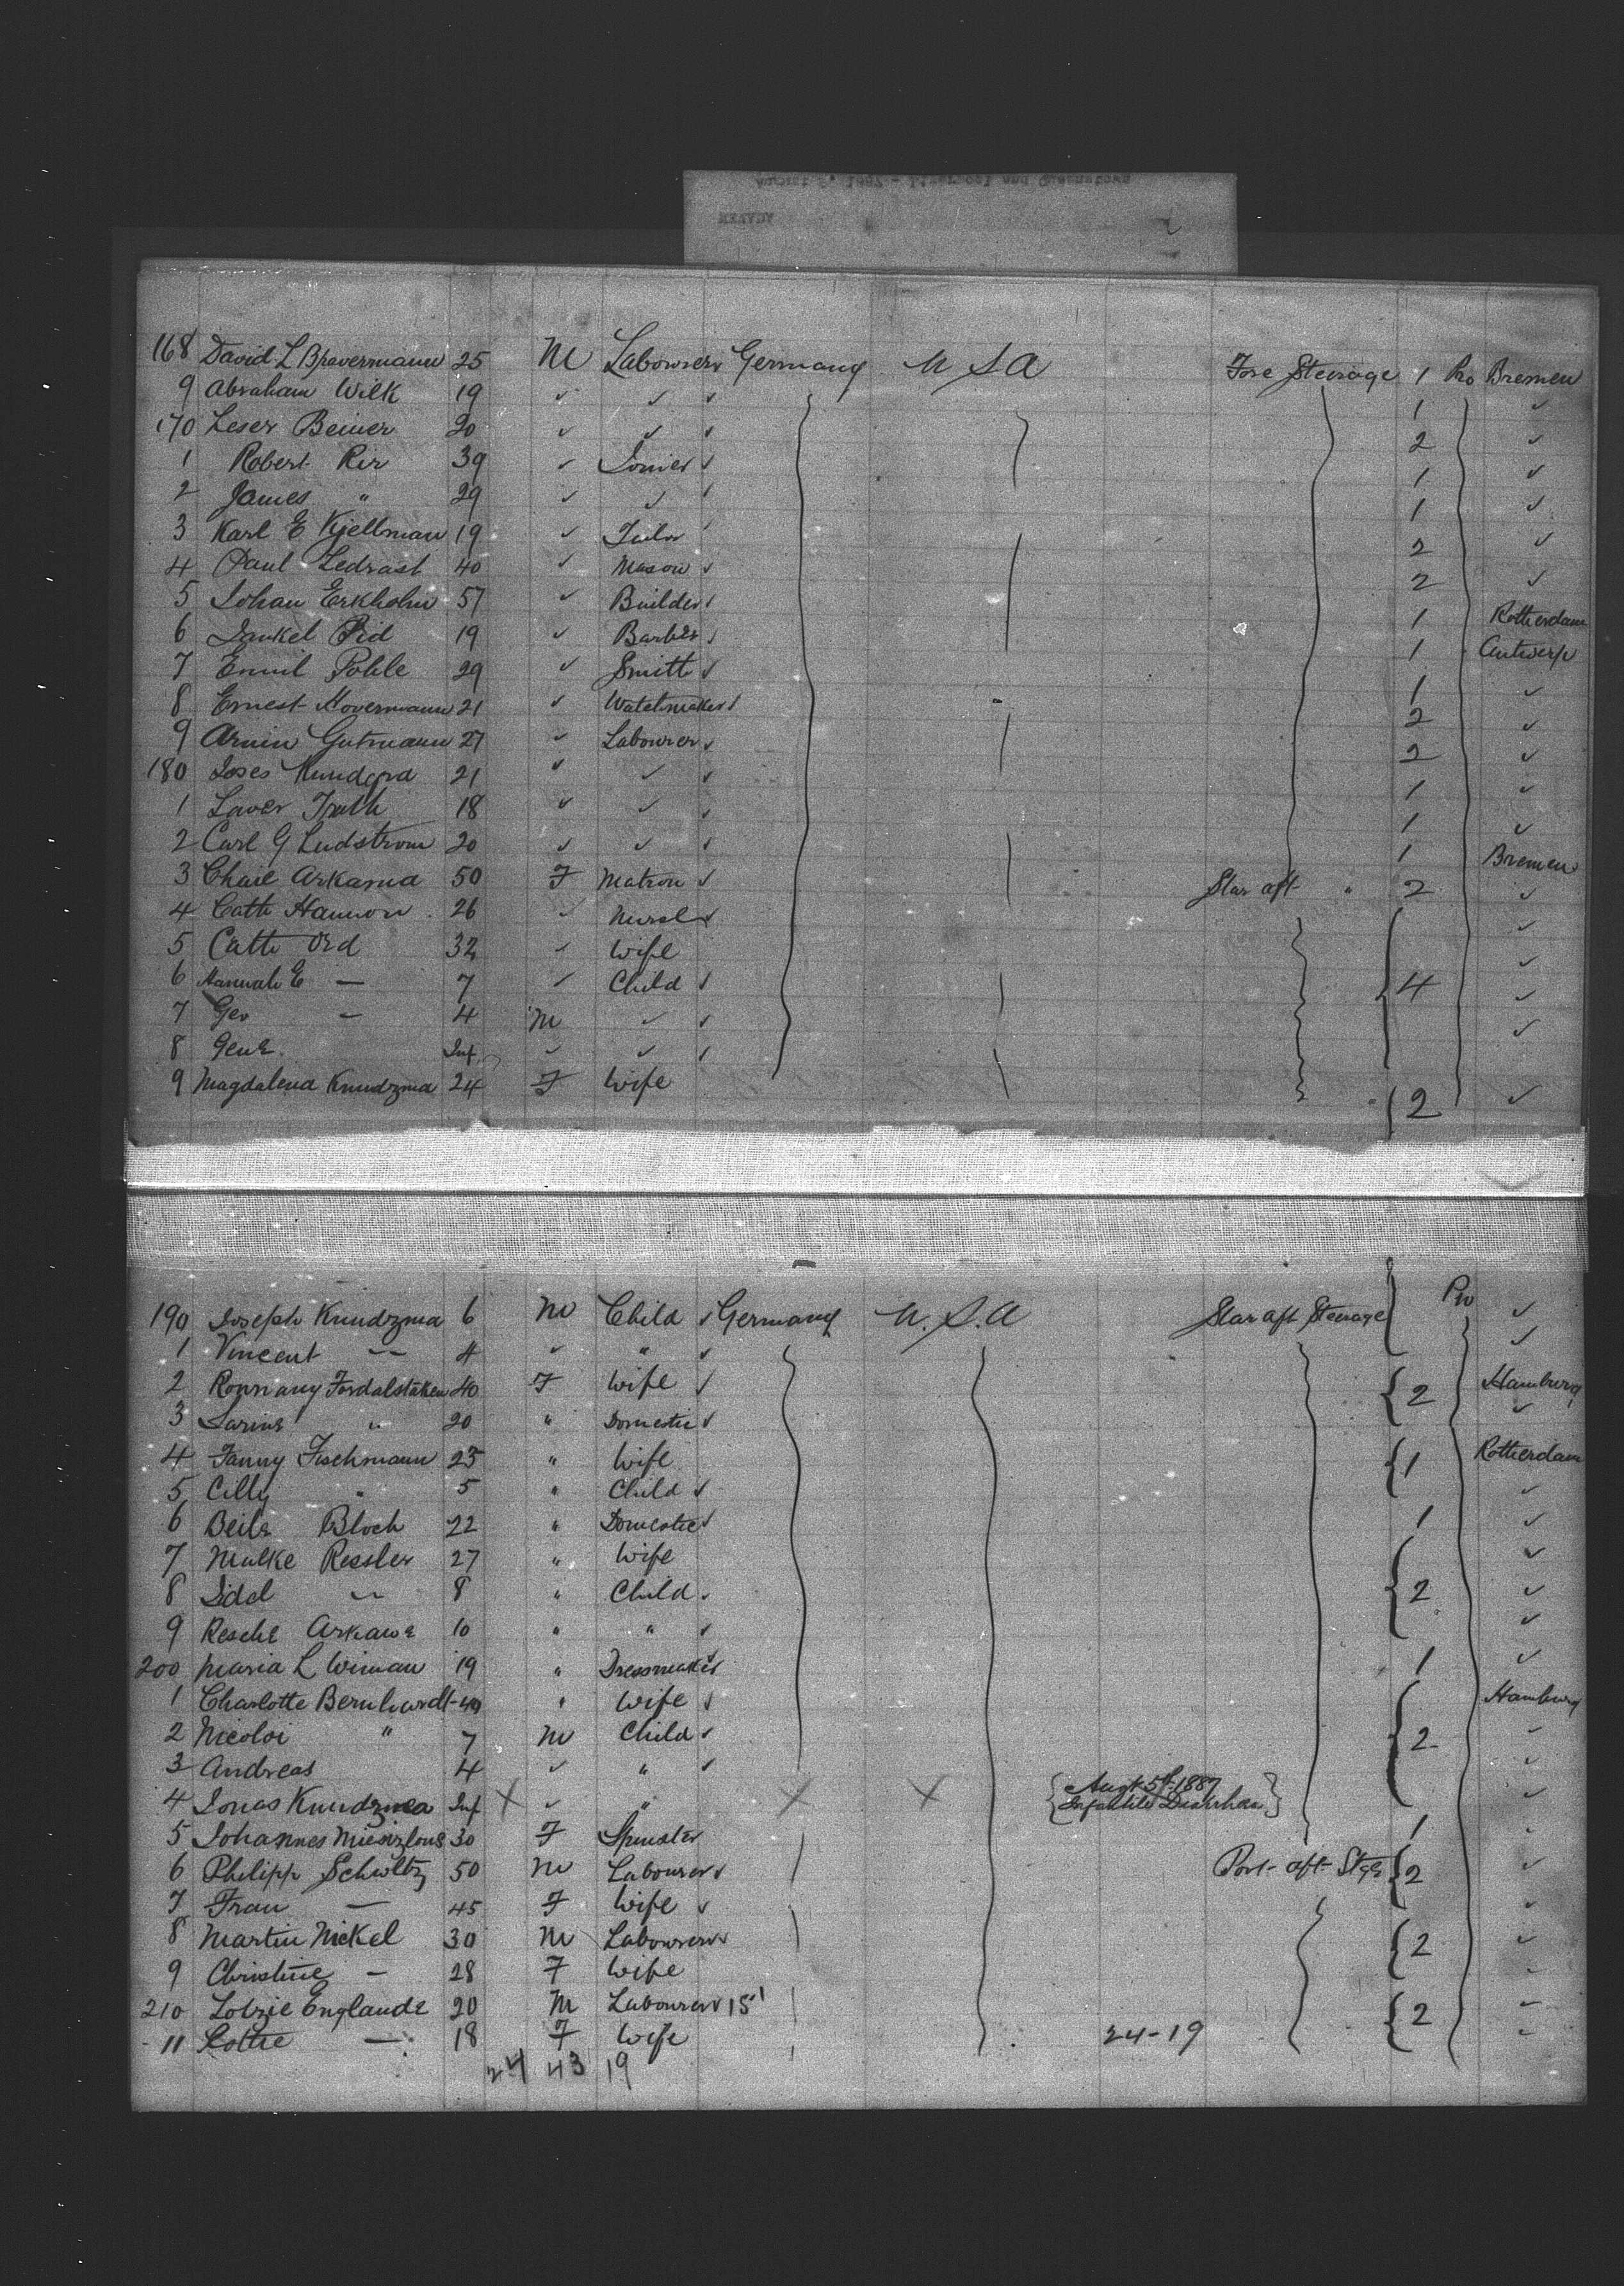 168 David L Bravermann 25 M Labourer Germany U S A Fore Steerage 1 Pro Bremen
9 Abraham Wilk 19 ✓ ✓ ✓ 1 ✓
170 Leser Beiner 20 ✓ ✓ ✓ 2 ✓
1 Robert Rir 39 ✓ Joiner ✓ 1 ✓
2 James " 29 ✓ ✓ ✓ 1 ✓
3 Karl E Kjellman 19 ✓ Tailor 2 ✓
4 Paul Ledrast 40 ✓ Mason ✓ 2 ✓
5 Johan Erkholm 57 ✓ Builder ✓ 1 Rotterdam
6 Jankel Pid 19 ✓ Barber ✓ 1 Antwerp
7 Emil Pohle 29 ✓ Smith ✓ 1 ✓
8 Ernest Hovermann 21 ✓ Watchmaker ✓ 2 ✓
9 Armin Gutmann 27 ✓ Labourer ✓ 2 ✓
180 Joses 21 ✓ ✓ ✓ 1 ✓
1 Laver 18 ✓ ✓ ✓ 1 ✓
2 Carl G Ludstrom 20 ✓ ✓ ✓ 1 Bremen
3 Chaie Arkama 50 F Matron ✓ Star aft " 2 ✓
4 Cath Hannon 26 ✓ Nurse ✓ ✓
5 Cath Ord 32 ✓ Wife ✓
6 Hannah E — 7 ✓ Child ✓ 4 ✓
7 Geo — 4 M ✓ ✓ ✓
8 Inf ✓ ✓ ✓
9 Magdalena Knudzma 24 F Wife 2 ✓
190 Joseph Knudzma 6 M Child ✓ Germany U.S.A Star aft Steerage Pro ✓
1 Vincent — 4 ✓ " ✓ ✓
2 40 F Wife ✓ 2 Hamburg
3 " 20 " Domestic ✓ ✓
4 Fanny Fischmann 25 " Wife 1 Rotterdam
5 Cilly " 5 " Child ✓ ✓
6 Beila Bloch 22 " Domestic ✓ 1 ✓
7 Malke Ressler 27 " Wife ✓
8 Sidel — 8 " Child ✓ 2 ✓
9 Resche Arkawa 10 " " ✓ ✓
200 Maria L Wiman 19 " Dressmaker 1 ✓
1 Charlotte Bernhardt 40 " Wife ✓ Hamburg
2 Nicoloi " 7 M Child ✓ 2 ✓
3 Andreas 4 ✓ " ✓ ✓
4 Jonas Knudzma Inf X ✓ " X X { Augt 5th 1887 Infantile Diarrhea } ✓
5 Johannes 30 F Spinster 1 ✓
6 Philipp Schultz 50 M Labourer ✓ Port aft Stge 2 ✓
7 Frau — 45 F Wife ✓ ✓
8 Martin Nickel 30 M Labourer ✓ 2 ✓
9 Christine — 28 F Wife
210 Englande 20 M Labourer ✓ 15 2
11 Lottie — 18 F Wife 24-19
24 43 19